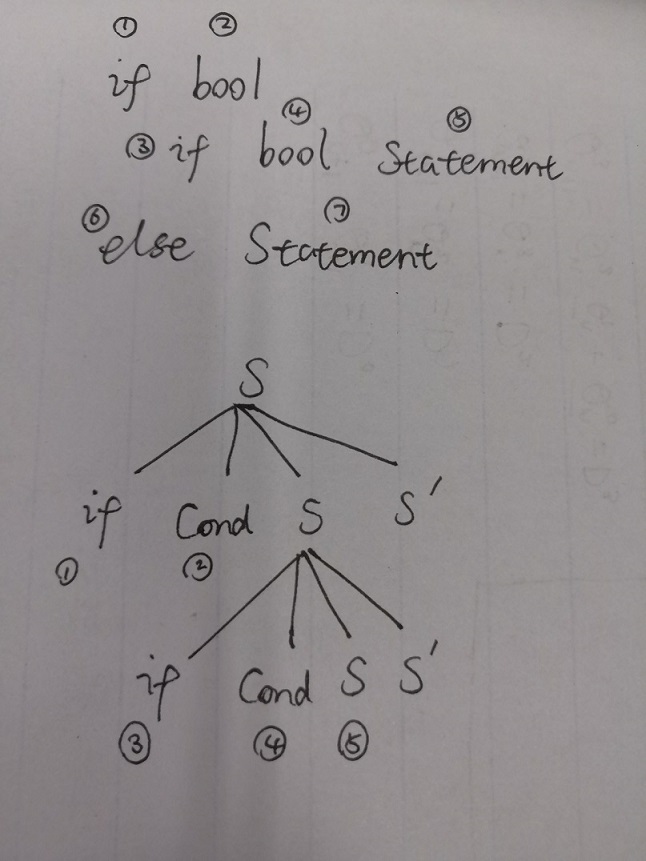 ① ②
if bool
④ ⑤
③ if bool Statement
⑥ ⑦
else Statement
S
if Cond S S'
① ②
if Cond S S'
③ ④ ⑤